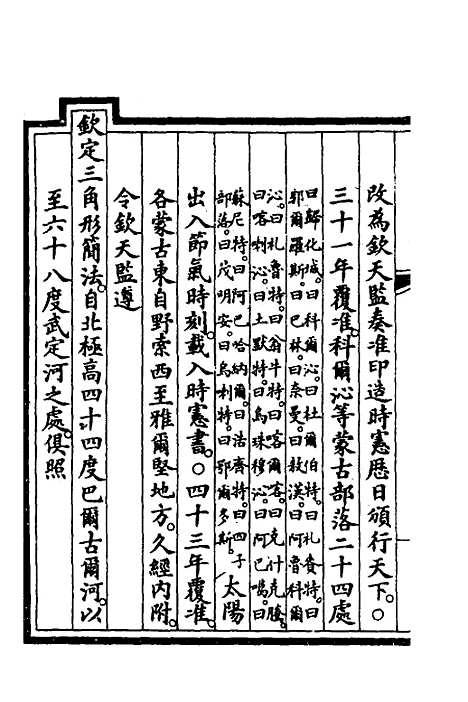 改為欽天監奏准印造時憲歷日頒行天下。○
三十一年覆准。科爾沁等蒙古部落二十四處
曰歸化城。曰科爾沁。曰杜爾伯特。曰札賚特。曰
郭爾羅斯。曰巴林。曰奈曼。曰敖漢。曰阿魯科爾
沁。曰札魯特。曰翁牛特。曰喀爾喀。曰克什克騰。
曰喀喇沁。曰土默特。曰烏珠穆沁。曰阿巴噶。曰
蘇尼特。曰阿巴哈納爾。曰浩齊特。曰四子
部落。曰茂明安。曰烏喇特。曰鄂爾多斯。
太陽
出入節氣時刻。載入時憲書。○四十三年覆准。
各蒙古東自野索西至雅爾堅地方。久經內附。
令欽天監遵
欽定三角形簡法。自北極高四十四度巴爾古爾河。以
至六十八度武定河之處。俱照